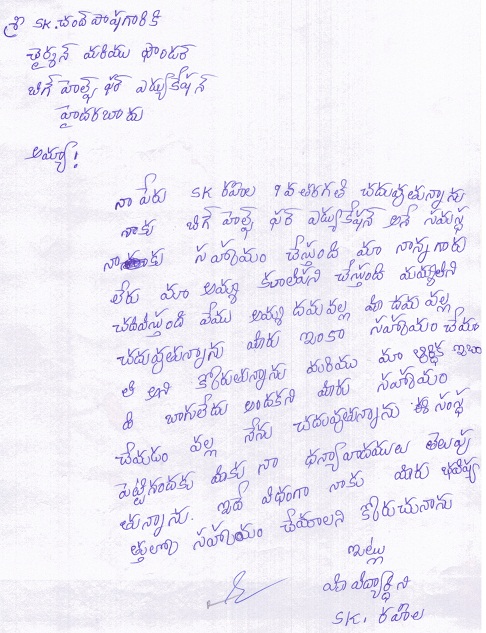 శ్రీ SK. చంద్ పాషగారికి
ఛైర్మన్ మరియు ఫౌండర్
బిగ్ హెల్ప్ ఫర్ ఎడ్యుకేషన్
హైదరబాదు
అయ్యా!
నా పేరు SK రహిల 9వ తరగతి చదువుతున్నాను
నాకు బిగ్ హెల్ప్ ఫర్ ఎడ్యుకేషన్ అనే సమస్థ
నాకు సహాయం చేస్తుంది మా నాన్నగారు
లేరు మా అమ్మ కూలిపని చేస్తుంది మమ్మలిని
చదివిస్తుంది మేము అమ్మ దమ వల్ల మీ దమ వల్ల
చదువుతున్నాను మీరు ఇంకా సహాయం చేయా
లి అని కోరుతున్నాను మరియు మా ఆర్థిక ఇబం
ది బాగులేదు అందకని మీరు సహాయం
చేయడం వల్ల నేను చదువుతున్నాను ఈ సంస్థ
పెట్టిగందకు మీకు నా ధన్యావాదములు తెలుపు
తున్నాను. ఇదే విధంగా నాకు మీరు భవిష్య
త్తులో సహాయం చేయాలని కోరుచునాను
ఇట్లు
మీ విద్యార్థిని
SK. రహిల